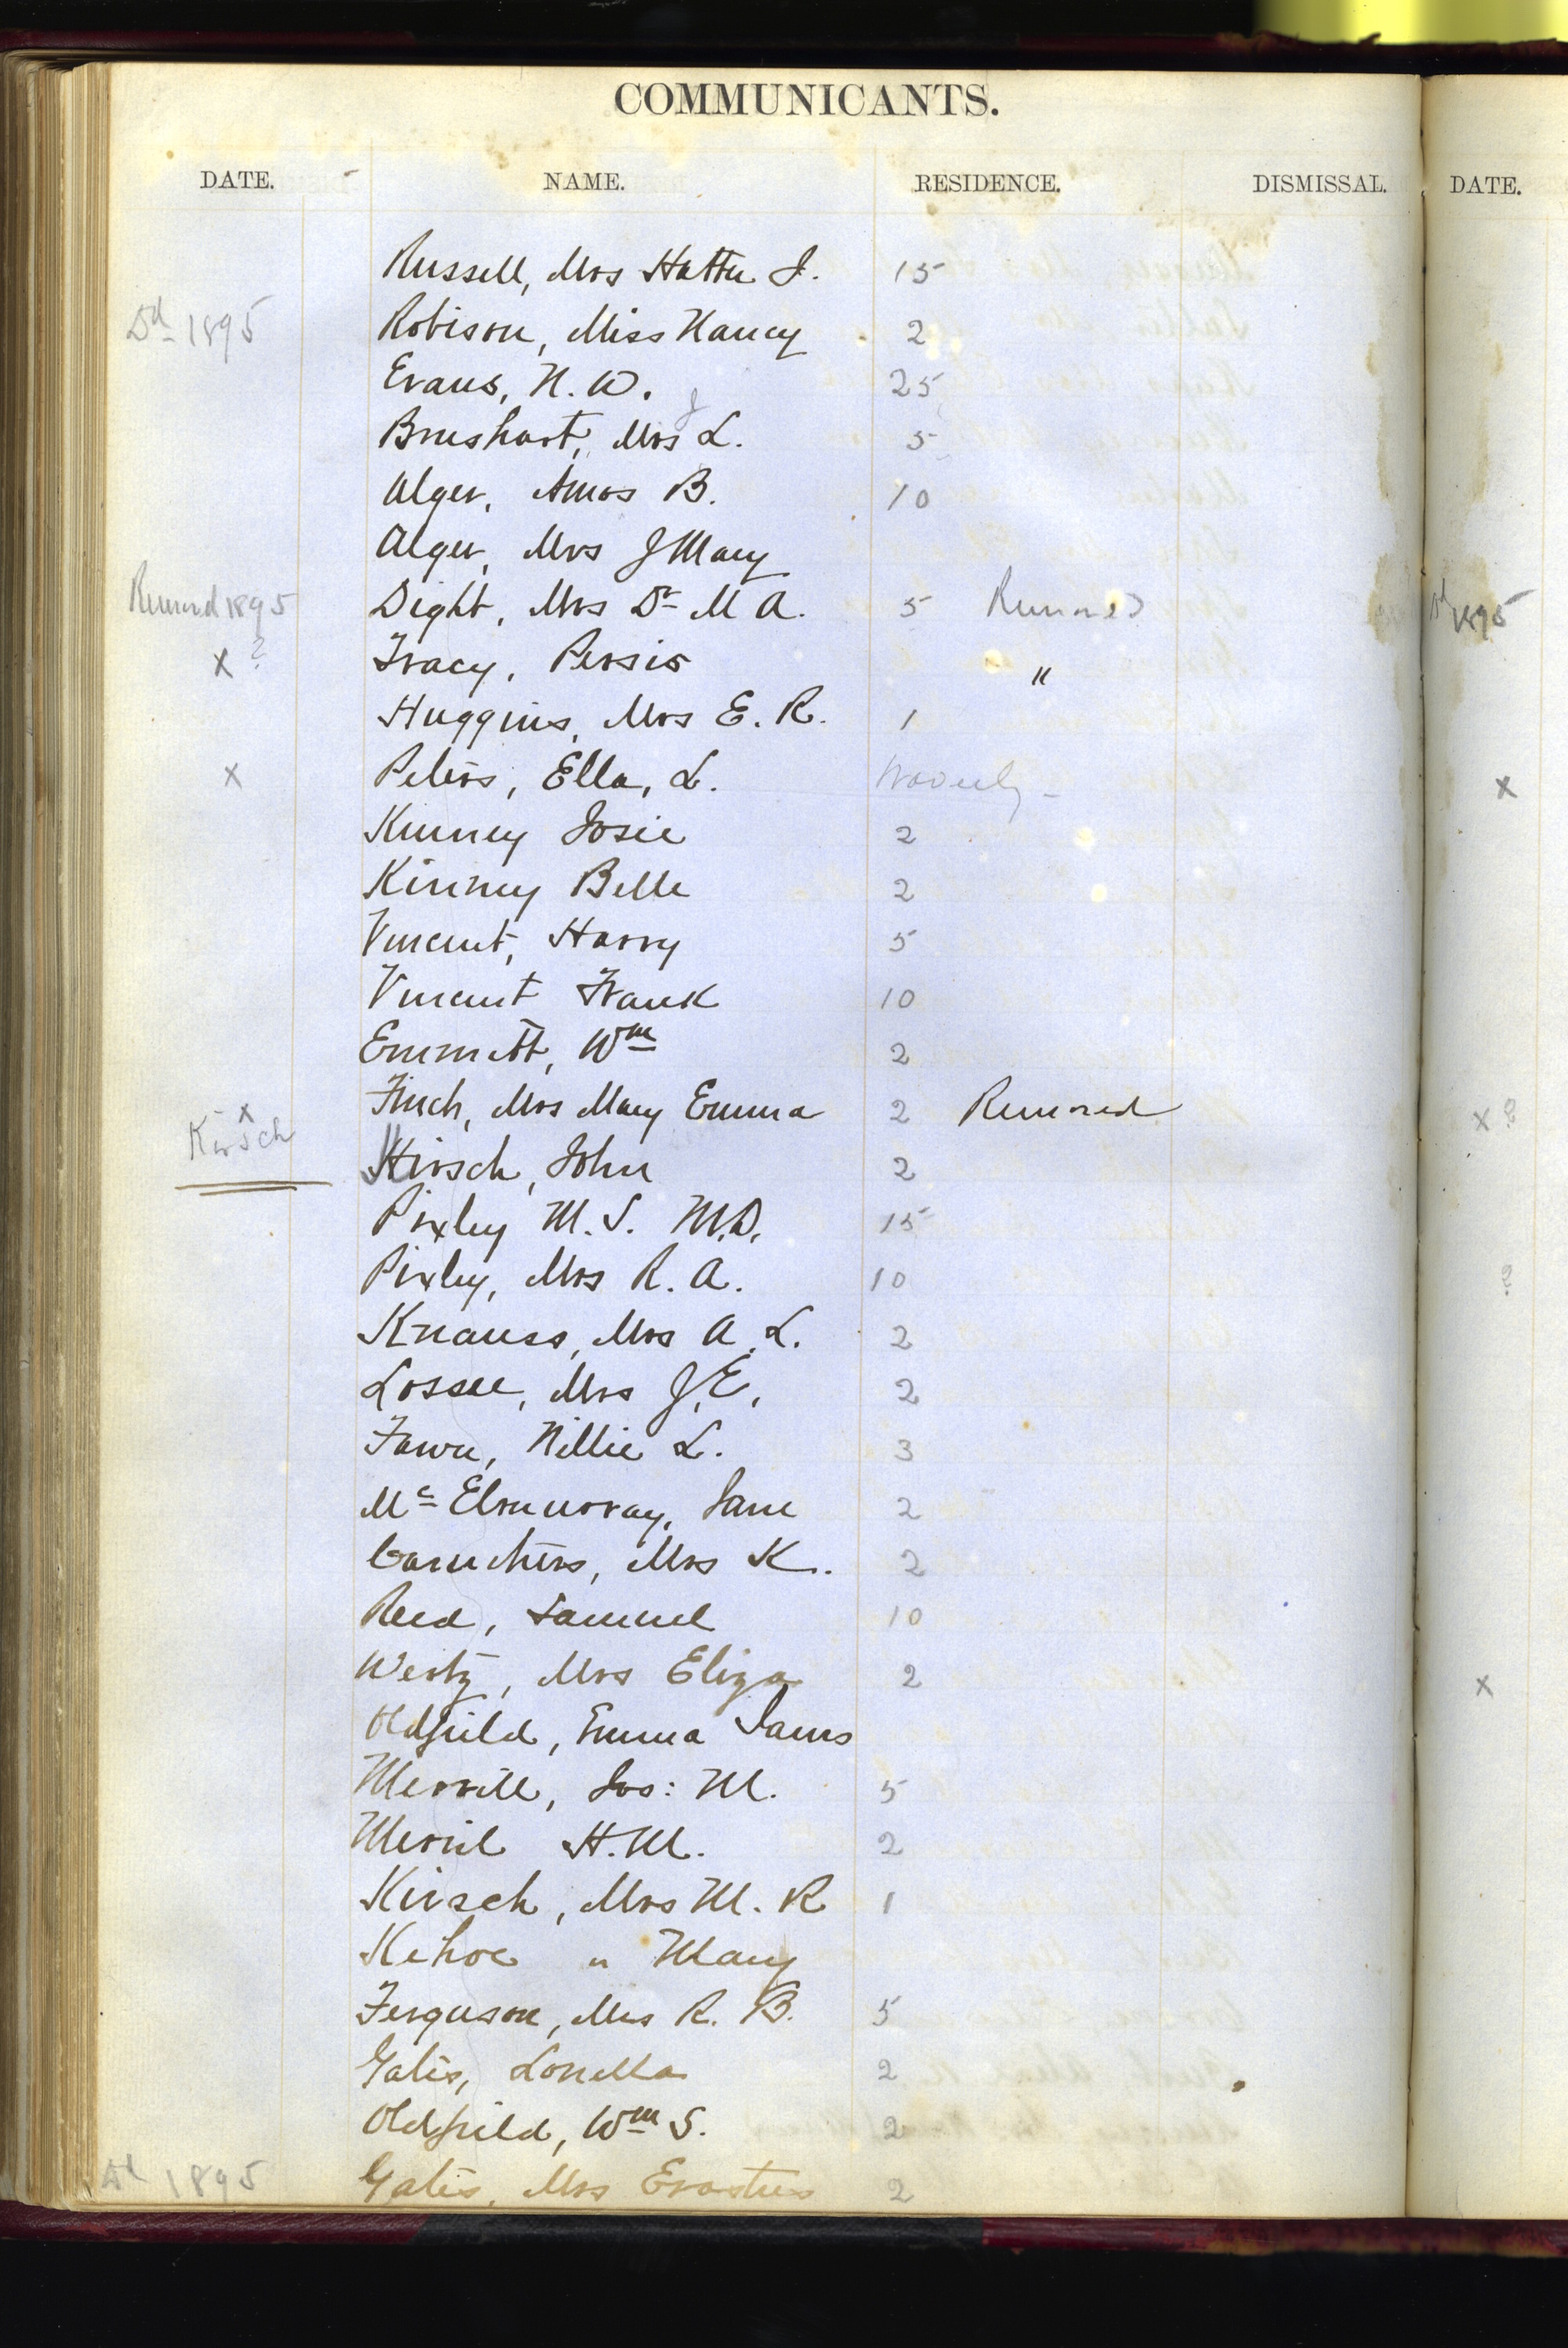 COMMUNICANTS.
DATE. NAME. RESIDENCE. DISMISSAL. DATE.
Russell, Mrs Hattie J. 15
Dd 1895 Robison, Miss Nancy 2
Evans, N. W. 25
Brushart, Mrs L. 5
J
Alger, Amos B. 10
Alger, Mrs J Mary
Removed 1895 Dight, Mrs Dr M A. 5 Removed Dd 1895
x ? Tracy, Persis "
Huggins, Mrs E. R. 1
x Peters, Ella, L. Waverly - x
Kinney Josie 2
Kinney Belle 2
Vincent, Harry 5
Vincent Frank 10
Emmett, Wm 2
x Finch, Mrs Mary Emma 2 Removed x ?
Kirsch Kirsch, John 2
Pixley M. S. M.D. 15
Pixley, Mrs R. A. 10 ?
Knauss, Mrs A. L. 2
Lossee, Mrs J. E. 2
Fawn, Nillie L. 3
Mc Jane 2
Caruthers, Mrs K. 2
Reed, Samuel 10
Wertz, Mrs Eliza 2 x
Oldfield, Emma Janes
Merrill, Jos: M. 5
Merril H. M. 2
Kirsch, Mrs M. R 1
Kehoe " Mary
Ferguson, Mrs R. B. 5
Gates, Louella 2
Oldfield, Wm S. 2
Dd 1895 Gates, Mrs Erastus 2